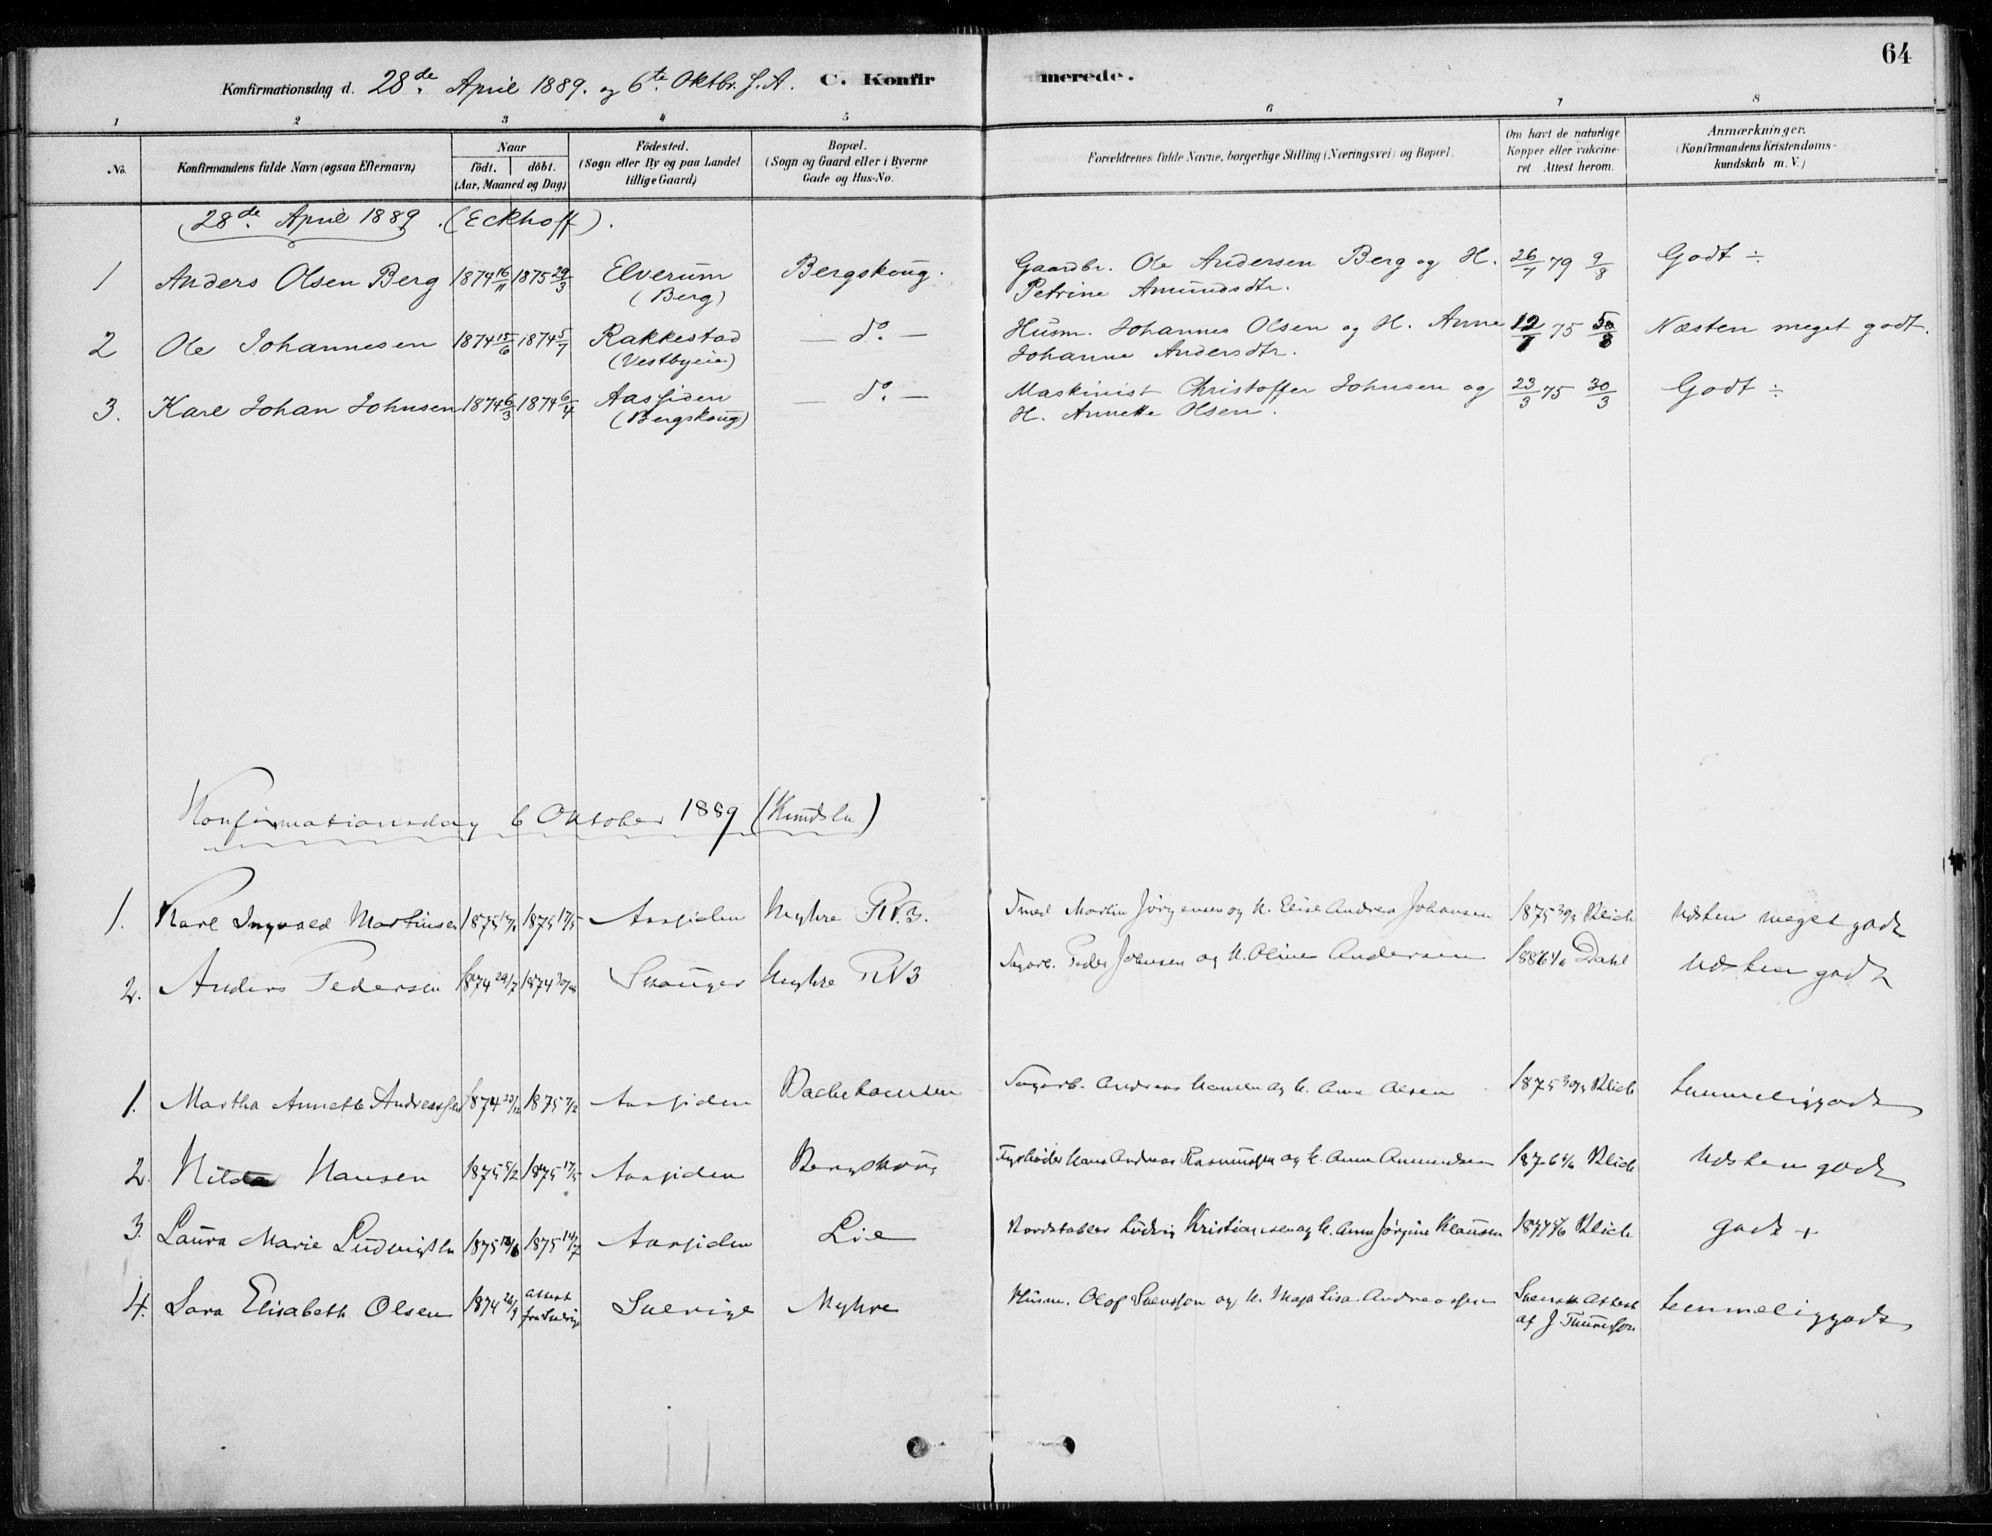 64
Konfirmationsdag d. 28de April 1889. og 6te Oktbr. S. A. C. Konfirmerede.
1 2 3 4 5 6 7 8
No. Konfirmandens fulde Navn (ogsaa Efternavn) Naar födt. döbt. (Aar, Maaned og Dag) Födested. (Sogn eller By og paa Landet tillige Gaard) Bopæl. (Sogn og Gaard eller i Byerne Gade og Hus-No. Forældrenes fulde Navne, borgerlige Stilling (Næringsvei) og Bopæl. Om havt de naturlige Kopper eller vakcineret Attest herom. Anmærkninger. (Konfirmandens Kristendomskundskab m. V.)
28de April 1889. (Eckhoff).
1 Anders Olsen Berg 1874 16/11 1875 29/3 Elverum (Berg) Bergskoug. Gaardbr. Ole Andersen Berg og H. Petrine Amundsdtr. 26/7 79 9/8 Godt ÷
2 Ole Johannesen 1874 15/6 1874 5/7 Rakkestad (Vestbyeie) — do. — Husm. Johannes Olsen og H. Anne Johanne Andersdtr. 75 Næsten meget godt.
3. Karl Johan Johnsen 1874 6/3 1874 6/4 Aassiden (Bergskoug) — do. — Maskinist Christoffer Johnsen og H. Annette Olsen. 23/3 75 30/3 Godt ÷
Konfirmationsdag 6 Oktober 1889 (Knudsen)
1. Karl Ingvald Martinsen 1875 1875 17/5 Aassiden Myhre Smed Martin Jörgensen og H. Elise Andrea Johansen 1875 Blich Næsten meget godt
2. Anders Pedersen 1874 29/7 1874 Skouger Myhre Sagarb. Peder Johnsen og H. Oline Andersen 1886 Dahl Næsten godt
1. Martha Annette Andreassen 1874 1875 7/2 Aassiden Bachehaugen Sagarb. Andreas Hansen og H. Anne Olsen 1875 Blich temmelig godt
2. Hilda Hansen 1875 5/2 1875 17/5 Aassiden Bergskoug Fyrböder Hans Andreas Rasmussen og H. Anne Amundsen 1876 Blich Næsten godt
3. Laura Marie Ludvigsen 1875 1875 14/7 Aassiden Lie Bordstabler Ludvig Kristiansen og H. Anne Jörgine Klausen 1877 Blich godt +
4. Sara Elisabeth Olsen 1874 attest fra Sverige Sverige Myhre Husm. Olof Svensson og H. Maja Lisa Andreassen Svensk Attest af J. temmelig godt